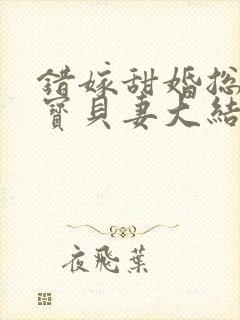 錯嫁甜婚总
寶貝妻大結
夜飛葉